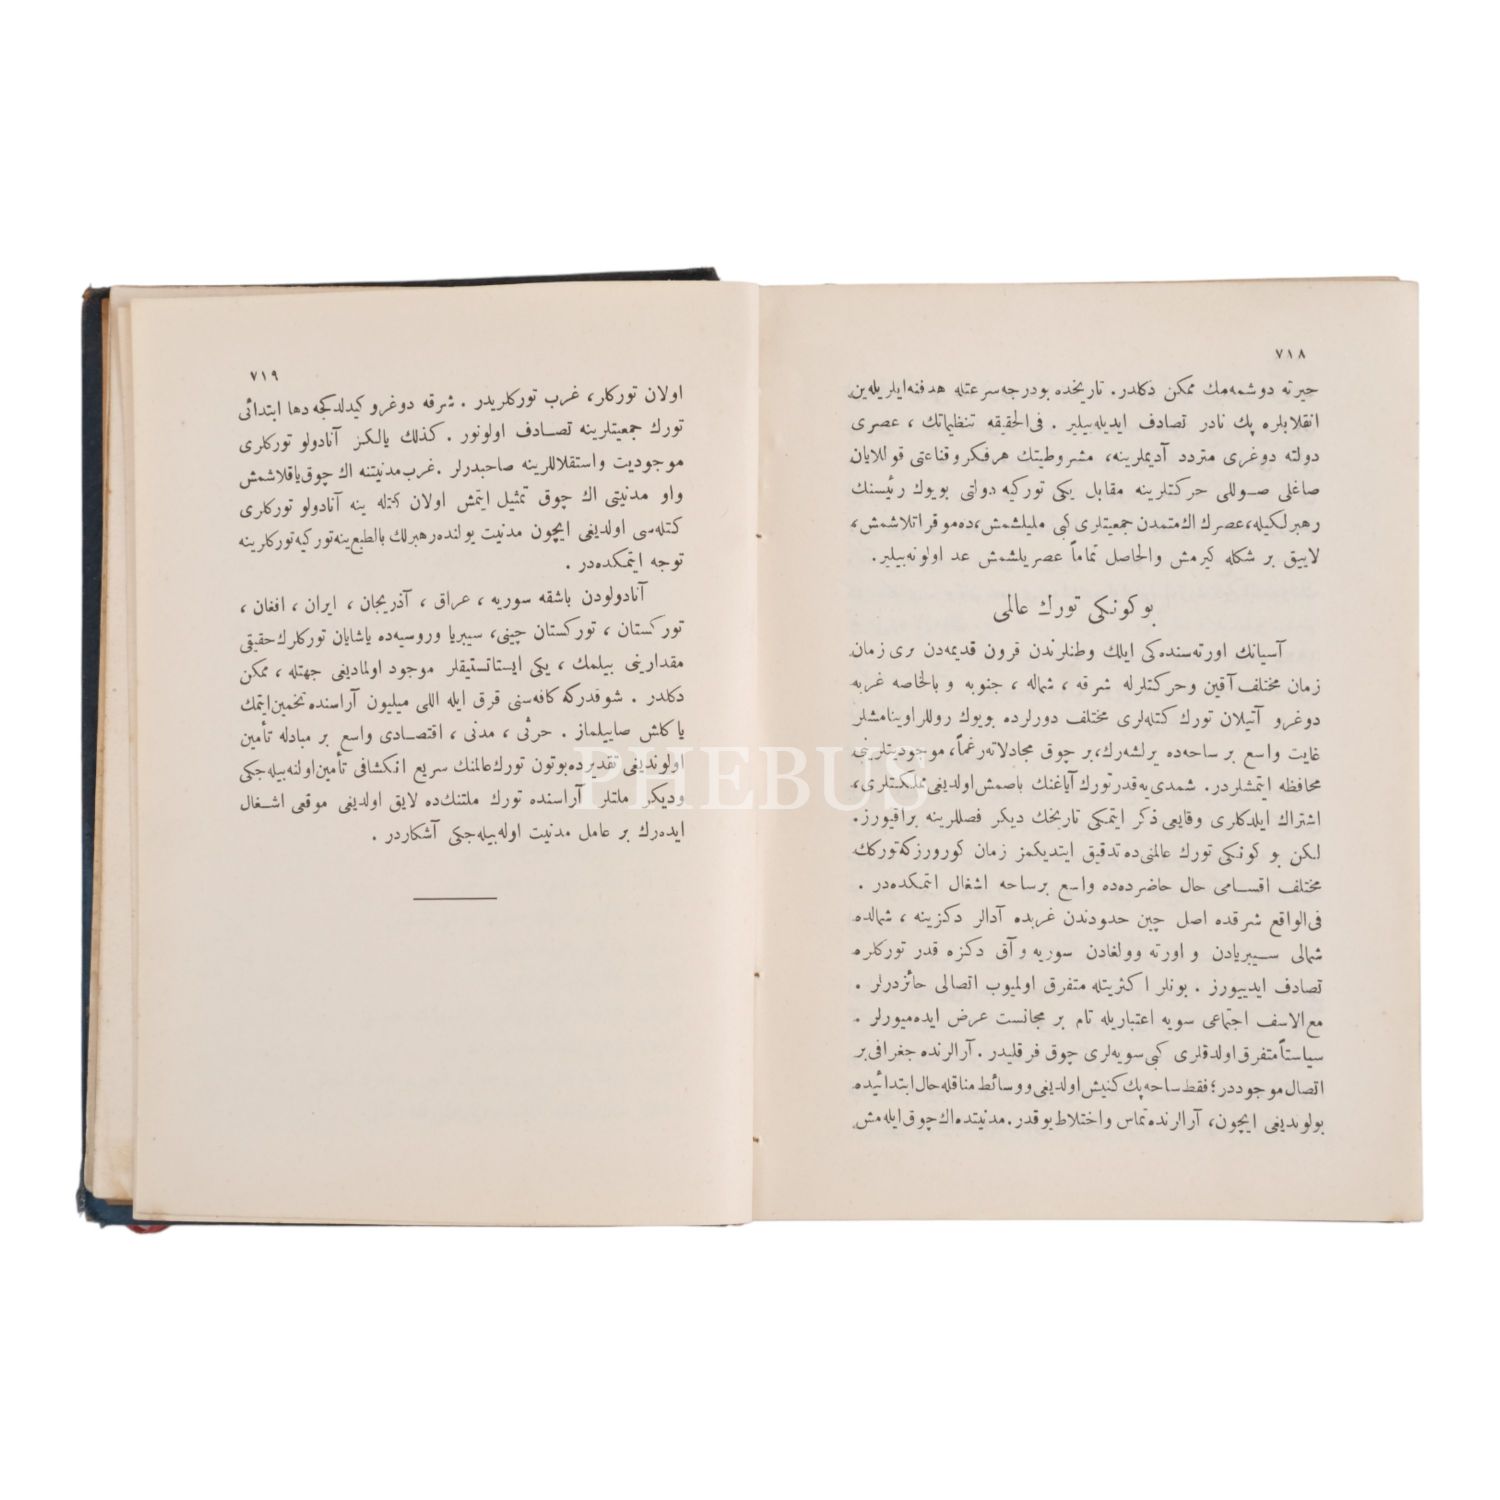 ٧١٨
حيرته دوشمه‌مك ممكن دكلدر. تاريخده بودرجه سرعتله هدفنه ايلريله‌ين
انقلابلره پك نادر تصادف ايديله‌بيلير . فى‌الحقيقه تنظيماتك ، عصرى
دولته دوغرى متردد آديملرينه، مشروطيتك هرفكر وقناعتى قوللايان
صاغلى صوللى حركتلرينه مقابل يكى توركيه دولتى بويوك رئيسنك
رهبرلكيله، عصرك اك متمدن جمعيتلرى كبى مليلشمش، ده‌موقراتلاشمش،
لاييق بر شكله كيرمش والحاصل تماماً عصريلشمش عد اولونه‌بيلير.
بوكونكى تورك عالمى
آسيانك اورته‌سنده‌كى ايلك وطنلرندن قرون قديمه‌دن برى زمان
زمان مختلف آقين وحركتلرله شرقه ، شماله ، جنوبه و بالخاصه غربه
دوغرو آتيلان تورك كتله‌لرى مختلف دورلرده بويوك روللر اوينامشلر
غايت واسع بر ساحه‌ده يرلشه‌رك، بر چوق مجادلاته رغماً، موجوديتلرينى
محافظه ايتمشلردر. شمدى‌يه قدر تورك آياغنك باصمش اولديغى مملكتلرى،
اشتراك ايلدكلرى وقايعى ذكر ايتمكى تاريخك ديكر فصللرينه براقيورز.
لكن بو كونكى تورك عالمنى ده تدقيق ايتديكمز زمان كورورزكه توركك
مختلف اقسامى حال حاضرده‌ده واسع برساحه اشغال اتمكده‌در .
فى‌الواقع شرقده اصل چين حدودندن غربده آدالر دكزينه ، شمالده
شمالى سيبريادن و اورته وولغادن سوريه و آق دكزه قدر توركلره
تصادف ايدييورز . بونلر اكثريتله متفرق اولميوب اتصالى حائزدرلر .
مع‌الاسف اجتماعى سويه اعتباريله تام بر مجانست عرض ايده‌ميورلر .
سياستاً متفرق اولدقلرى كبى سويه‌لرى چوق فرقليدر . آرالرنده جغرافى بر
اتصال موجوددر؛ فقط ساحه پك كنيش اولديغى ووسائط مناقله حال ابتدائيده
بولونديغى ايچون، آرالرنده تماس واختلاط يوقدر. مدنيتده اك چوق ايله‌مش
٧١٩
اولان توركلر، غرب توركلريدر . شرقه دوغرو كيدلدكجه دها ابتدائى
تورك جمعيتلرينه تصادف اولونور . كذلك يالكز آنادولو توركلرى
موجوديت واستقلاللرينه صاحبدرلر . غرب مدنيتنه اك چوق ياقلاشمش
واو مدنيتى اك چوق تمثيل ايتمش اولان كتله ينه آنادولو توركلرى
كتله‌سى اولديغى ايچون مدنيت يولنده رهبرلك بالطبع ينه توركيه توركلرينه
توجه ايتمكده‌در .
آنادولودن باشقه سوريه ، عراق ، آذربيجان ، ايران ، افغان ،
توركستان ، توركستان چينى، سيبريا وروسيه‌ده ياشايان توركلرك حقيقى
مقدارينى بيلمك ، يكى ايستاتستيقلر موجود اولماديغى جهتله ، ممكن
دكلدر . شوقدركه كافه‌سنى قرق ايله اللى ميليون آراسنده تخمين ايتمك
ياكلش صاييلماز . حرثى ، مدنى ، اقتصادى واسع بر مبادله تأمين
اولونديغى تقديرده بوتون تورك عالمنك سريع انكشافى تأمين اولنه‌بيله‌جكى
وديكر ملتلر آراسنده تورك ملتنك‌ده لايق اولديغى موقعى اشغال
ايده‌رك بر عامل مدنيت اوله‌بيله‌جكى آشكاردر .
PHEBUS